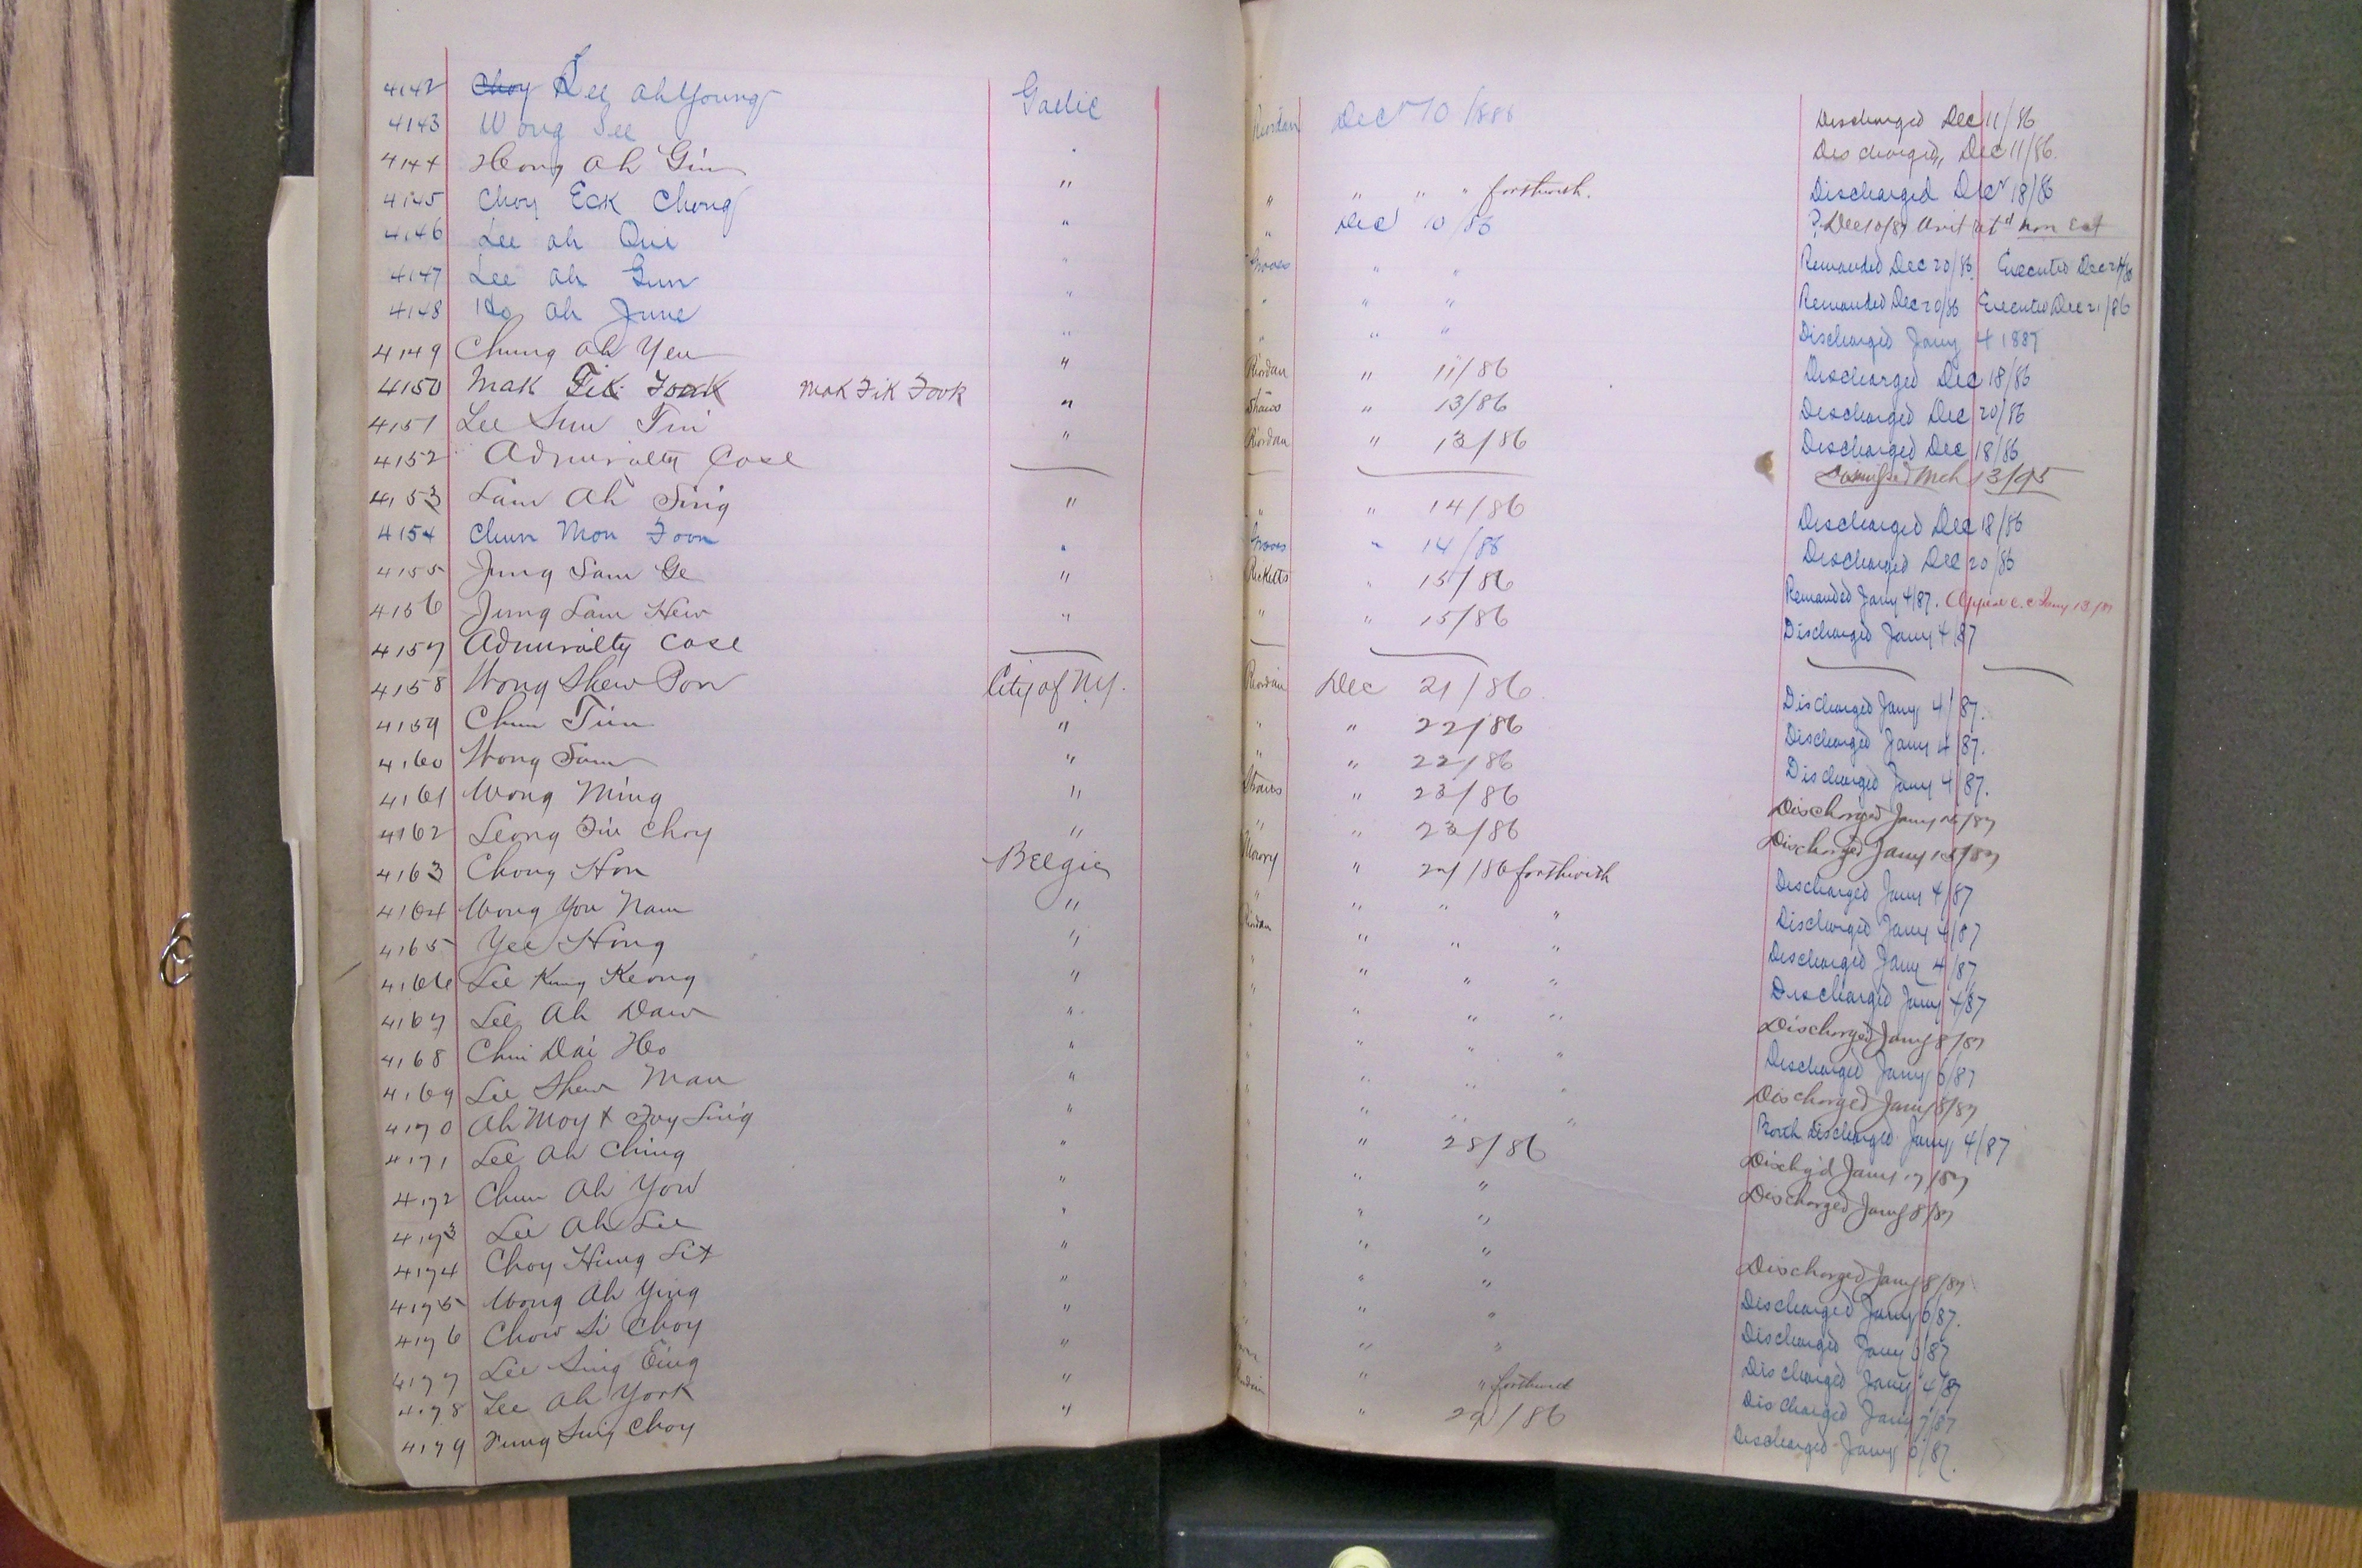 4142 Choy Lee Ah Young Gaelic Riordan Decr 10/886 Discharged Dec 11/86
4143 Wong See " Discharged, Dec 11/86.
4144 Hong Ah Gin " " " " " forthwith. Discharged Decr 18/86
4145 Choy Eck Chong " " Dec 10/86 ? Dec 10/87 Writ retd non est
4146 Lee Ah Qui " " " Remanded Dec 20/86. Executed Dec 21/86
4147 Lee Ah Gun " " " " Remanded Dec 20/86 Executed Dec 21/86
4148 Ho Ah June " " " " Discharged Jany 4 1887
4149 Chung Ah Yen " Riordan " 11/86 Discharged Dec 18/86
4150 Mak Fik Fook Mak Fik Fook " " 13/86 Discharged Dec 20/86
4151 Lee Sun Tin " Riordan " 13/86 Discharged Dec 18/86
4152 Admiralty Case Dismissed Mch 13/95
4153 Lam Ah Sing " " " 14/86 Discharged Dec 18/86
4154 Chun Mon Foon " " 14/86 Discharged Dec 20/86
4155 Jung Sam Ge " Ricketts " 15/86 Remanded Jany 4/87. Appeal C.C. Jany 13/87
4156 Jung Sam Hew " " " 15/86 Discharged Jany 4/87
4157 Admiralty Case
4158 Wong Shew Pon City of N.Y. Riordan Dec 21/86 Discharged Jany 4/87.
4159 Chun Tim " " " 22/86 Discharged Jany 4/87.
4160 Wong Sam " " " 22/86 Discharged Jany 4/87.
4161 Wong Ming " " 23/86 Discharged Jany /87
4162 Leong Fin Choy " " " 23/86 Discharged Jany 13/87
4163 Chong Hon Belgic Mowry " 27/86 forthwith Discharged Jany 4/87
4164 Wong You Nam " " " " " Discharged Jany 4/87
4165 Yee Hong " Riordan " " " Discharged Jany 4/87
4166 Lee Kung Keong " " " " " Discharged Jany 4/87
4167 Lee Ah Daw " " " " Discharged Jany 8/87
4168 Chin Dai Ho " " " " Discharged Jany 6/87
4169 Lee Shew Man " " " " Discharged Jany 8/87
4170 Ah Moy & Foy Sing " " " " Both discharged Jany 4/87
4171 Lee Ah Ching " " 28/86 Dischg'd Jany 17/87
4172 Chun Ah You " " " Discharged Jany 8/87
4173 Lee Ah Lee " " "
4174 Choy Hung Sit " " " Discharged Jany 8/87
4175 Wong Ah Ying " " " Discharged Jany 6/87.
4176 Chow Si Choy " " " Discharged Jany 6/87
4177 Lee Sing Eing " " " Discharged Jany 4/87
4178 Lee Ah York " " " forthwith Discharged Jany 7/87
4179 Fung Sing Choy " " 29/86 Discharged Jany 6/87.